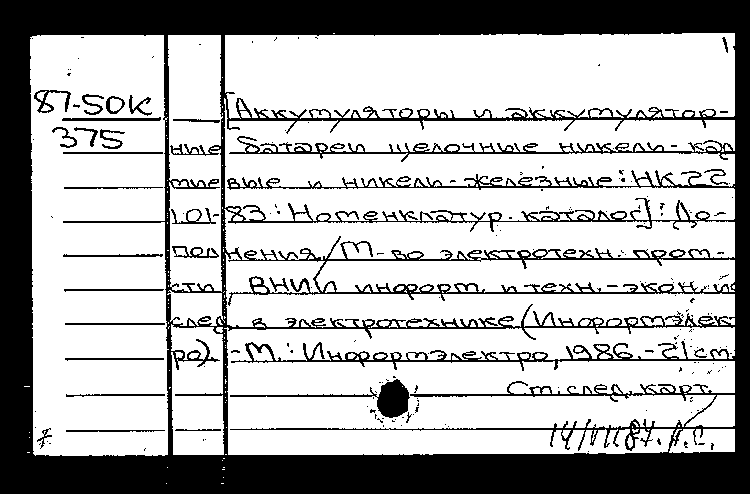 1.
87-50К [Аккумуляторы и аккумулятор-
375
ные батареи щелочные никель-кад
миевые и никель-железные: НК.22.
1.01-83: Номенклатур. каталог]: До-
полнения / М-во электротехн. пром-
сти, ВНИИ информ. и техн.-экон. ис
след. в электротехнике (Информэлект
ро). -М.: Информэлектро, 1986. -2 ст.
См. след. карт.
14/VII 87. А.С.